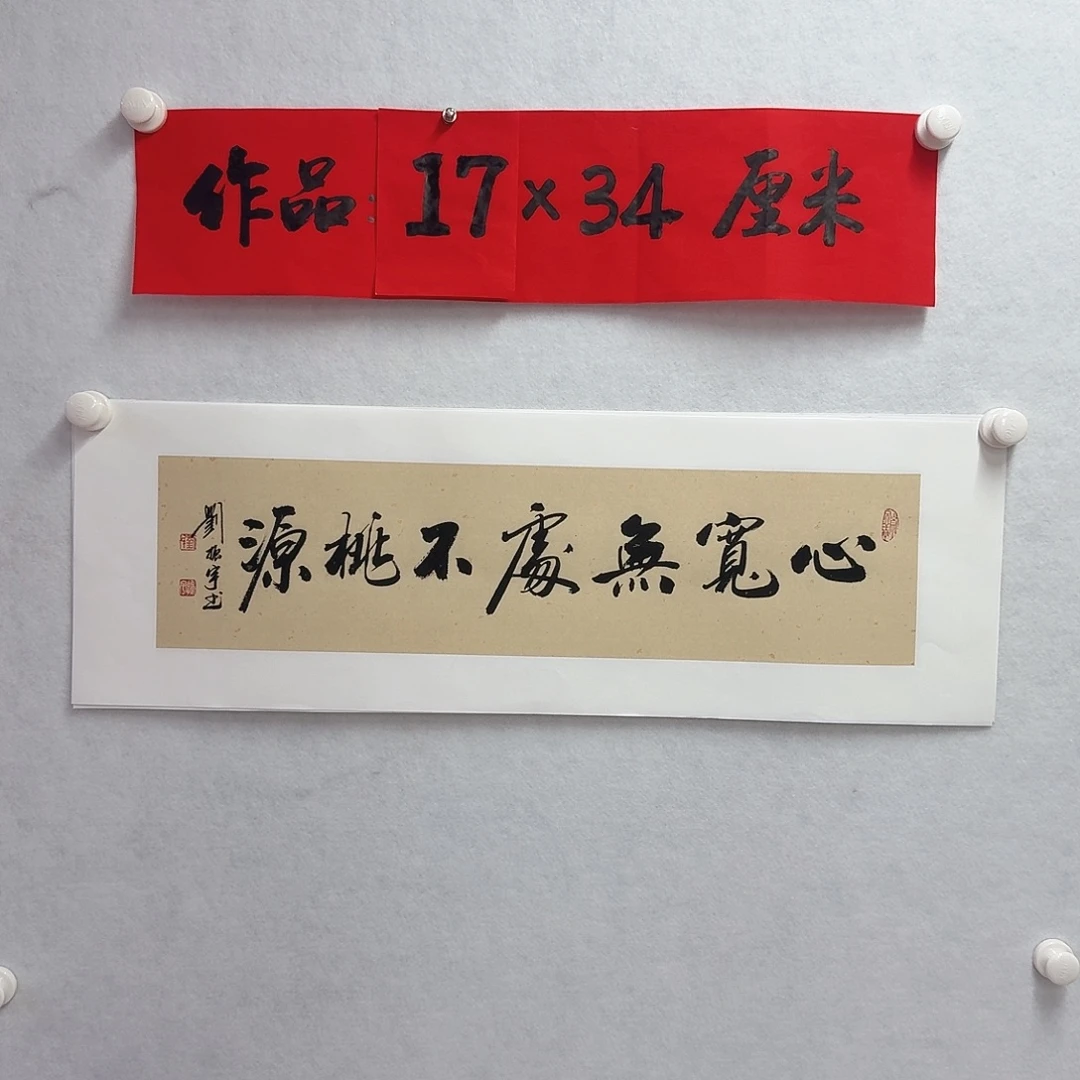 作品:17×34厘米
心寬無處不桃源
劉振宇書